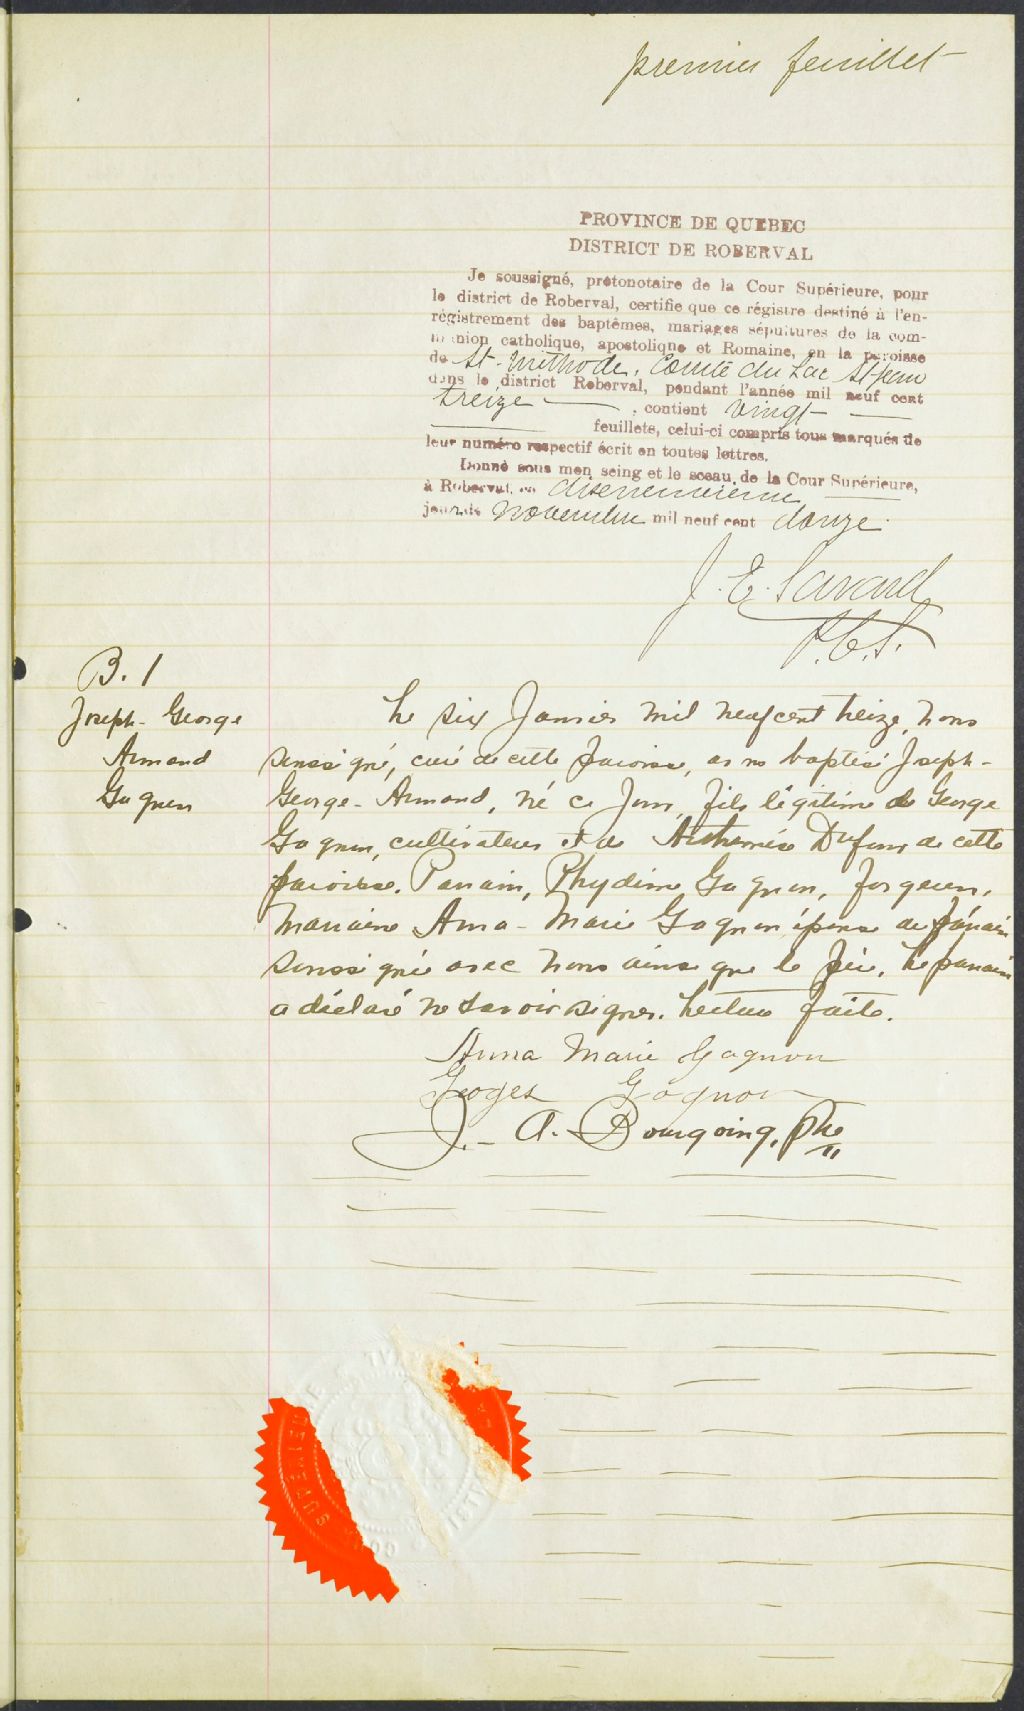 premier feuillet
PROVINCE DE QUEBEC
DISTRICT DE ROBERVAL
Je soussigné, protonotaire de la Cour Supérieure, pour
le district de Roberval, certifie que ce régistre destiné à l'en-
régistrement des baptêmes, mariages sépultures de la com-
munion catholique, apostolique et Romaine, en la paroisse
de St-Méthode, Comté du Lac St Jean
dans le district Roberval, pendant l'année mil neuf cent
treize, contient vingt
feuillets, celui-ci compris tous marqués de
leur numéro respectif écrit en toutes lettres.
Donné sous mon seing et le sceau de la Cour Supérieure,
à Roberval, ce
jour de novembre mil neuf cent douze
J. E. Savard
P.C.S.
B. 1
Joseph-George
Armand
Gagnon
Le six Janvier mil neuf cent treize, nous
soussigné, curé de cette paroisse, avons baptisé Joseph-
George-Armand, né ce jour, fils légitime de George
Gagnon, cultivateur et de Arthémise Dufour de cette
paroisse. Parrain, Phydime Gagnon, forgeron,
marraine Anna-Marie Gagnon épouse du parrain
soussignée avec nous ainsi que le père. Le parrain
a déclaré ne savoir signer. Lecture faite.
Anna Marie Gagnon
Georges Gagnon
J.-A. Bourgoing, Ptre